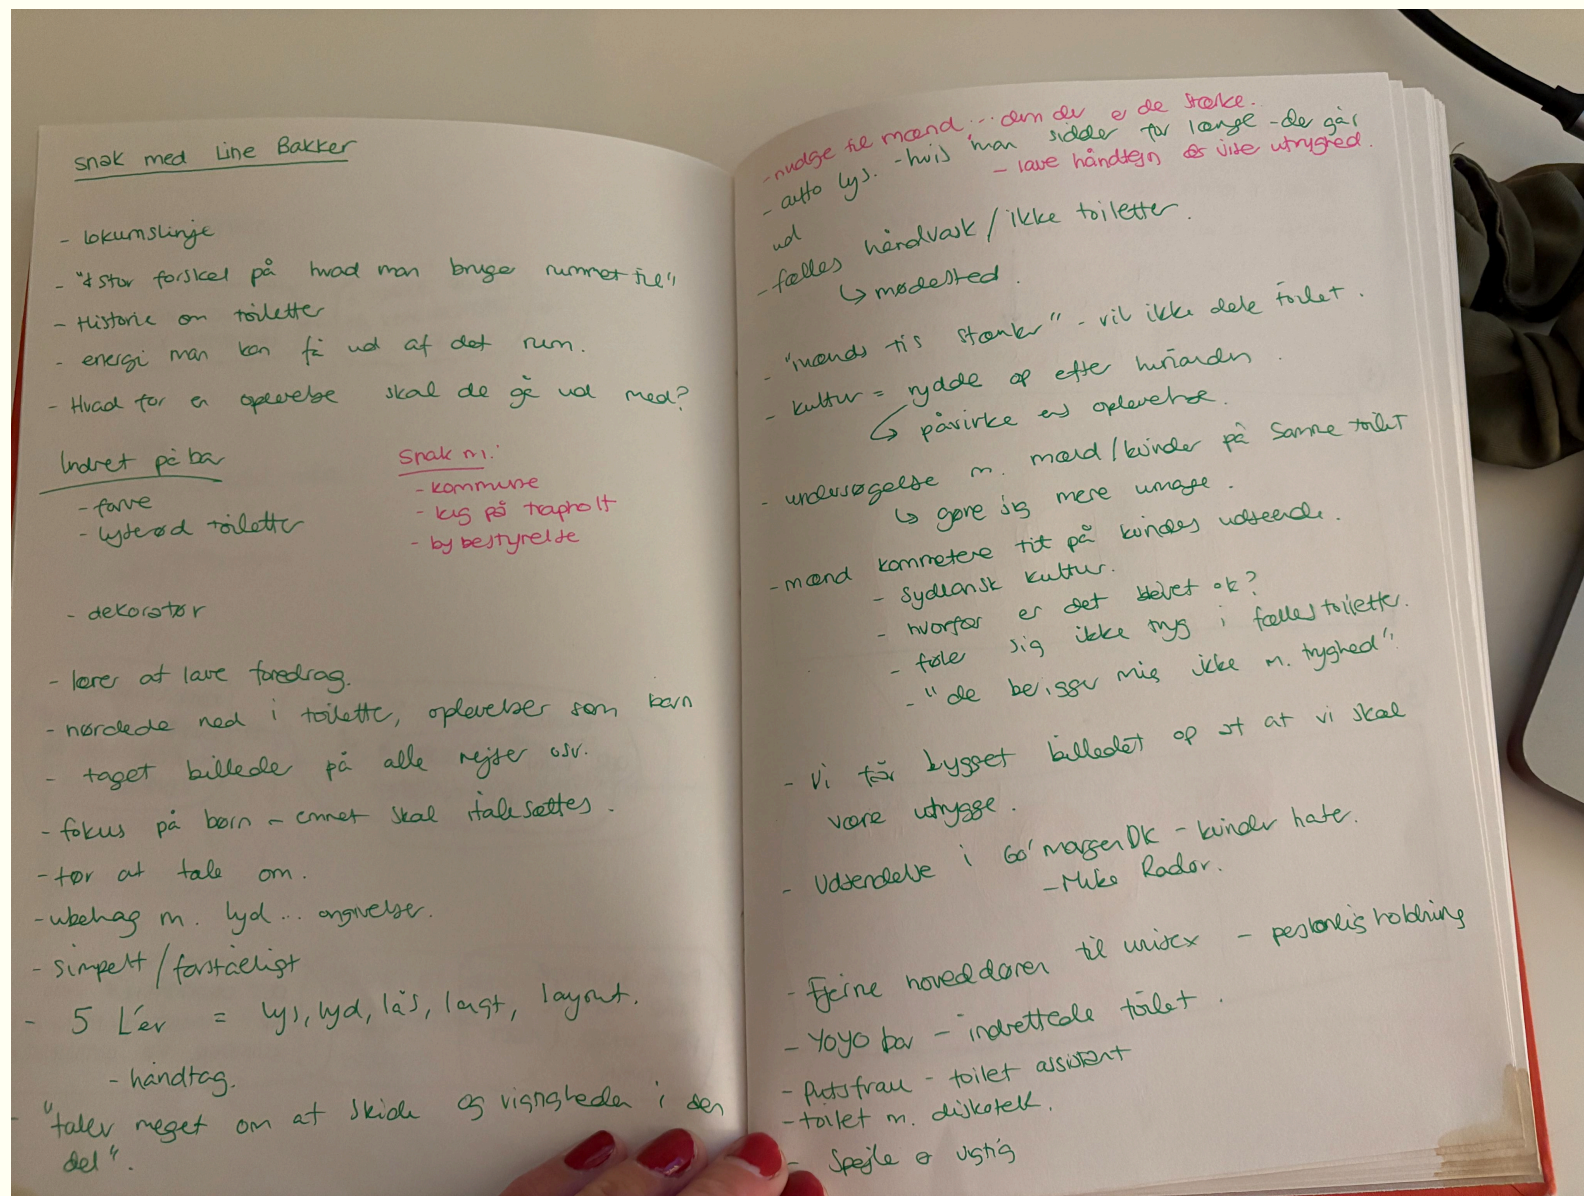 snak med Line Bakker
- lokumslinje
- "stor forskel på hvad man bruger rummet til"
- Historie om toiletter
- energi man kan få ud af det rum.
- Hvad for en oplevelse skal de gå ud med?
Indret på bar
- farve
- lyserød toiletter
Snak m:
- kommune
- kig på trapholt
- by bestyrelse
- dekoratør
- lærer at lave foredrag.
- nørdede ned i toilette, oplevelser som barn
- taget billeder på alle rejser osv.
- fokus på børn - emnet skal italesættes.
- tør at tale om.
- ubehag m. lyd... angivelser.
- simpelt/forståeligt
- 5 L'er = lys, lyd, lås, lugt, layout.
- håndtag.
- "taler meget om at skide og vigtigheden i den
del".
- nudge til mænd... dem der er de stærke.
- auto lys. - hvis man sidder for længe - de går
ud
- lave håndtegn vise utryghed.
- fælles håndvask / ikke toiletter.
↳ mødested.
- "mænds tis stanker" - vil ikke dele toilet.
- kultur = rydde op efter hinanden.
↳ påvirke ens oplevelse.
- undersøgelse m. mænd/kvinder på samme toilet
↳ gøre sig mere umage.
- mænd kommetere tit på kvindes udseende.
- Sydlansk kultur.
- hvorfor er det blevet ok?
- føler sig ikke tryg i fællestoiletter.
- "de beriger mig ikke m. tryghed".
- Vi får bygget billedet op at vi skal
være utrygge.
- Udsendelse i Go'morgen DK - kvinder hater.
- Mike Radør.
- Fjerne hoveddøren til unisex - personlig holdning
- Yoyo bar - indrettede toilet.
- Putsfrau - toilet assistent
- toilet m. diskotek.
- Spejle er vigtig